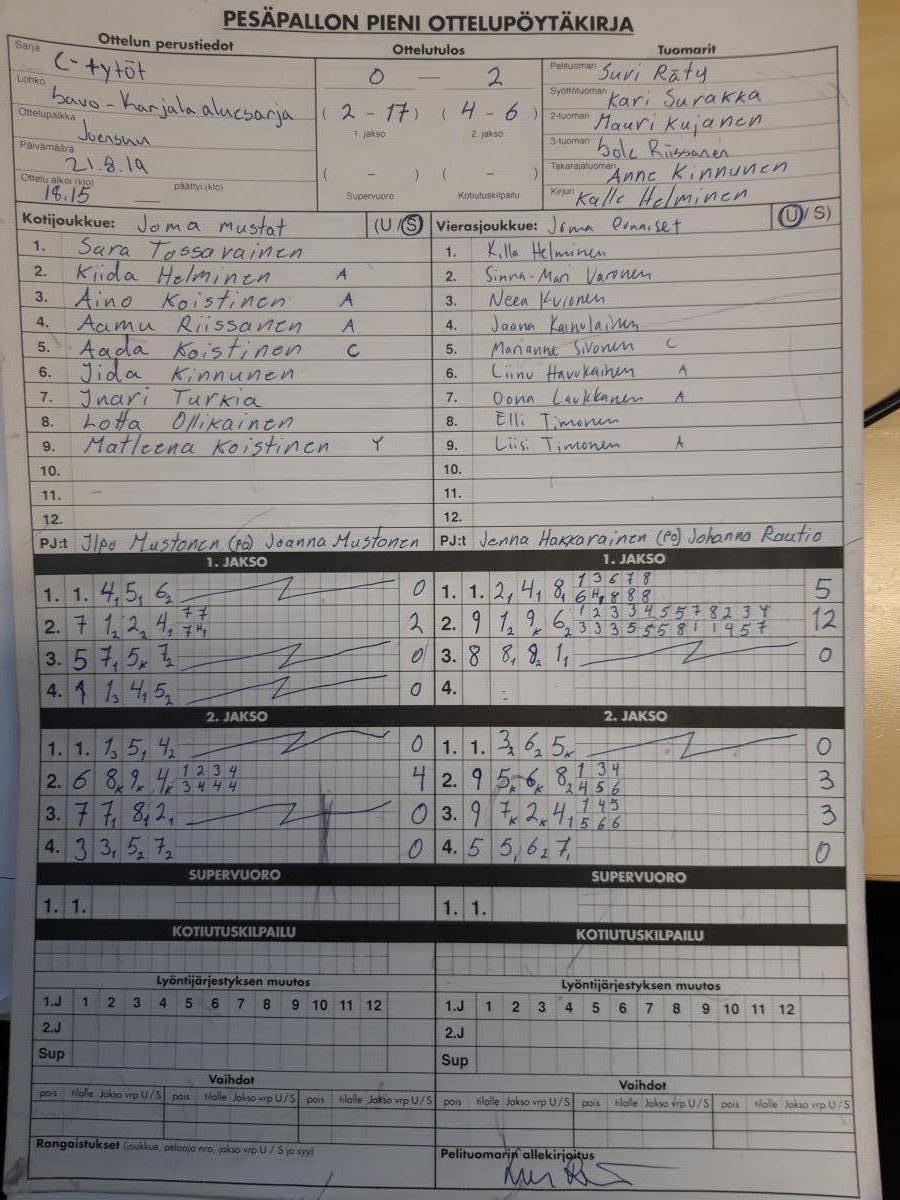 PESÄPALLON PIENI OTTELUPÖYTÄKIRJA
Ottelun perustiedot
Sarja C-tytöt
Lohko Savo-Karjala aluesarja
Ottelupaikka Joensuu
Päivämäärä 21.8.19
Ottelu alkoi (klo) 18.15 päättyi (klo)
Ottelutulos
0 — 2
(2 - 17) (4 - 6)
1. jakso 2. jakso
( - ) ( - )
Supervuoro Kotiutuskilpailu
Tuomarit
Pelituomari Suvi Räty
Syöttötuomari Kari Surakka
2-tuomari Mauri Kujanen
3-tuomari Riissanen
Takarajatuomari Anne Kinnunen
Kirjuri Kalle Helminen
Kotijoukkue: Joma mustat (U/S)
1. Sara Tossavainen
2. Kiida Helminen A
3. Aino Koistinen A
4. Aamu Riissanen A
5. Aada Koistinen C
6. Iida Kinnunen
7. Inari Turkia
8. Lotta Ollikainen
9. Matleena Koistinen Y
10.
11.
12.
PJ:t Ilpo Mustonen (PJ) Joanna Mustonen
Vierasjoukkue: Joma Punaiset (U/S)
1. Helminen
2. Sinna-Mari Varonen
3. Neea
4. Jaana Kainulainen
5. Marianne Sivonen C
6. Liinu Havukainen A
7. Oona Laukkanen A
8. Elli Timonen
9. Liisi Timonen A
10.
11.
12.
PJ:t Jenna Hakkarainen (PJ) Johanna Rautio
1. JAKSO
1. 1. 4₁ 5₁ 6₂ 0
2. 7 1₂ 2₂ 4₁ 2
3. 5 7₁ 5ₖ 7₂ 0
4. 1 1₃ 4₁ 5₂ 0
1. JAKSO
1. 1. 2₁ 4₁ 8₁ 1 3 6 7 8 5
6 4 8 8 8
2. 9 1₂ 9ₖ 6₂ 1 2 3 3 4 5 5 7 8 2 3 4 12
3 3 3 5 5 5 8 1 1 9 5 7
3. 8 8₁ 9₂ 1₁ 0
4.
2. JAKSO
1. 1. 1₃ 5₁ 4₂ 0
2. 6 8ₖ 9ₖ 4ₖ 1 2 3 4 4
3 4 4 4
3. 7 7₁ 8₁ 2₁ 0
4. 3 3₁ 5₂ 7₂ 0
2. JAKSO
1. 1. 3₂ 6₂ 5ₖ 0
2. 9 5ₖ 6ₖ 8₂ 1 3 4 3
4 5 6
3. 9 7ₖ 2ₖ 4₁ 1 4 5 3
5 6 6
4. 5 5₁ 6₂ 7₁ 0
SUPERVUORO
1. 1.
SUPERVUORO
1. 1.
KOTIUTUSKILPAILU
KOTIUTUSKILPAILU
Lyöntijärjestyksen muutos
1.J 1 2 3 4 5 6 7 8 9 10 11 12
2.J
Sup
Lyöntijärjestyksen muutos
1.J 1 2 3 4 5 6 7 8 9 10 11 12
2.J
Sup
Vaihdot
pois tilalle Jakso vrp U/S pois tilalle Jakso vrp U/S pois tilalle Jakso vrp U/S
Vaihdot
pois tilalle Jakso vrp U/S pois tilalle Jakso vrp U/S pois tilalle Jakso vrp U/S
Rangaistukset (joukkue, pelaaja nro, jakso vrp U/S ja syy)
Pelituomarin allekirjoitus